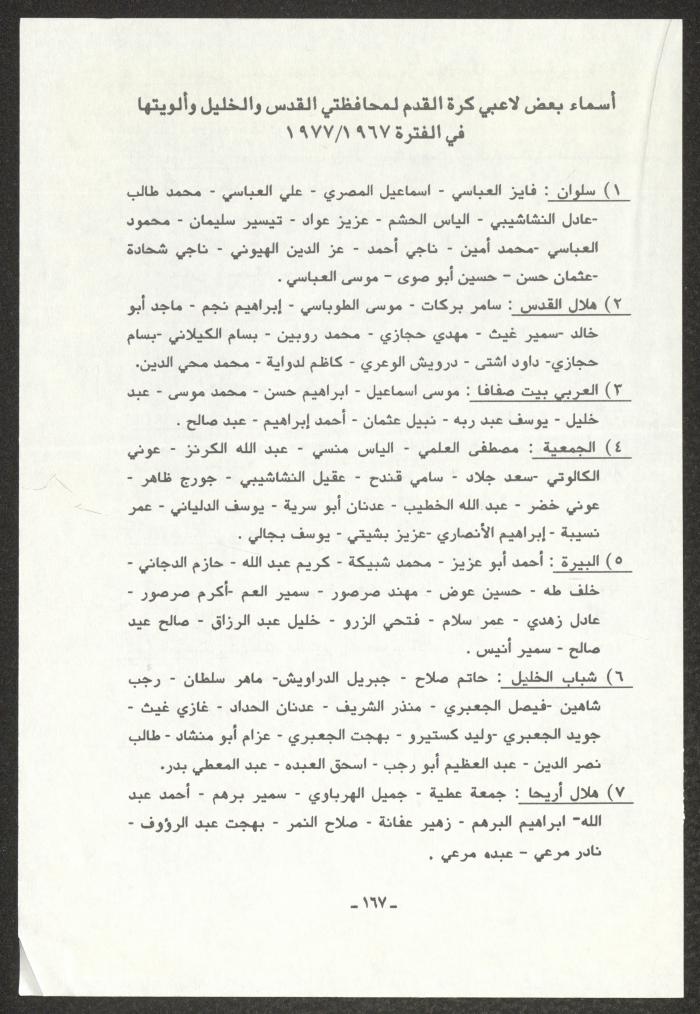 أسماء بعض لاعبي كرة القدم لمحافظتي القدس والخليل وألويتها
في الفترة ١٩٦٧/١٩٧٧
١) سلوان : فايز العباسي - اسماعيل المصري - علي العباسي - محمد طالب
-عادل النشاشيبي - الياس الحشم - عزيز عواد - تيسير سليمان - محمود
العباسي -محمد أمين - ناجي أحمد - عز الدين الهيوني - ناجي شحادة
-عثمان حسن - حسين أبو صوى - موسى العباسي .
٢) هلال القدس : سامر بركات - موسى الطوباسي - إبراهيم نجم - ماجد أبو
خالد -سمير غيث - مهدي حجازي - محمد روبين - بسام الكيلاني -بسام
حجازي- داود اشتى - درويش الوعري - كاظم لدواية - محمد محي الدين.
٣) العربي بيت صفافا : موسى اسماعيل - ابراهيم حسن - محمد موسى - عبد
خليل - يوسف عبد ربه - نبيل عثمان - أحمد إبراهيم - عبد صالح .
٤) الجمعية : مصطفى العلمي - الياس منسي - عبد الله الكرنز - عوني
الكالوتي -سعد جلاد - سامي قندح - عقيل النشاشيبي - جورج ظاهر -
عوني خضر - عبد الله الخطيب - عدنان أبو سرية - يوسف الدلياني - عمر
نسيبة - إبراهيم الأنصاري -عزيز بشيتي - يوسف بجالي .
٥) البيرة : أحمد أبو عزيز - محمد شبيكة - كريم عبد الله - حازم الدجاني -
خلف طه - حسين عوض - مهند صرصور - سمير العم -أكرم صرصور -
عادل زهدي - عمر سلام - فتحي الزرو - خليل عبد الرزاق - صالح عيد
صالح - سمير أنيس .
٦) شباب الخليل : حاتم صلاح - جبريل الدراويش- ماهر سلطان - رجب
شاهين -فيصل الجعبري - منذر الشريف - عدنان الحداد - غازي غيث -
جويد الجعبري -وليد كستيرو - بهجت الجعبري - عزام أبو منشاد - طالب
نصر الدين - عبد العظيم أبو رجب - اسحق العبده - عبد المعطي بدر.
٧) هلال أريحا : جمعة عطية - جميل الهرباوي - سمير برهم - أحمد عبد
الله- ابراهيم البرهم - زهير عفانة - صلاح النمر - بهجت عبد الرؤوف -
نادر مرعي - عبده مرعي .
- ١٦٧ -